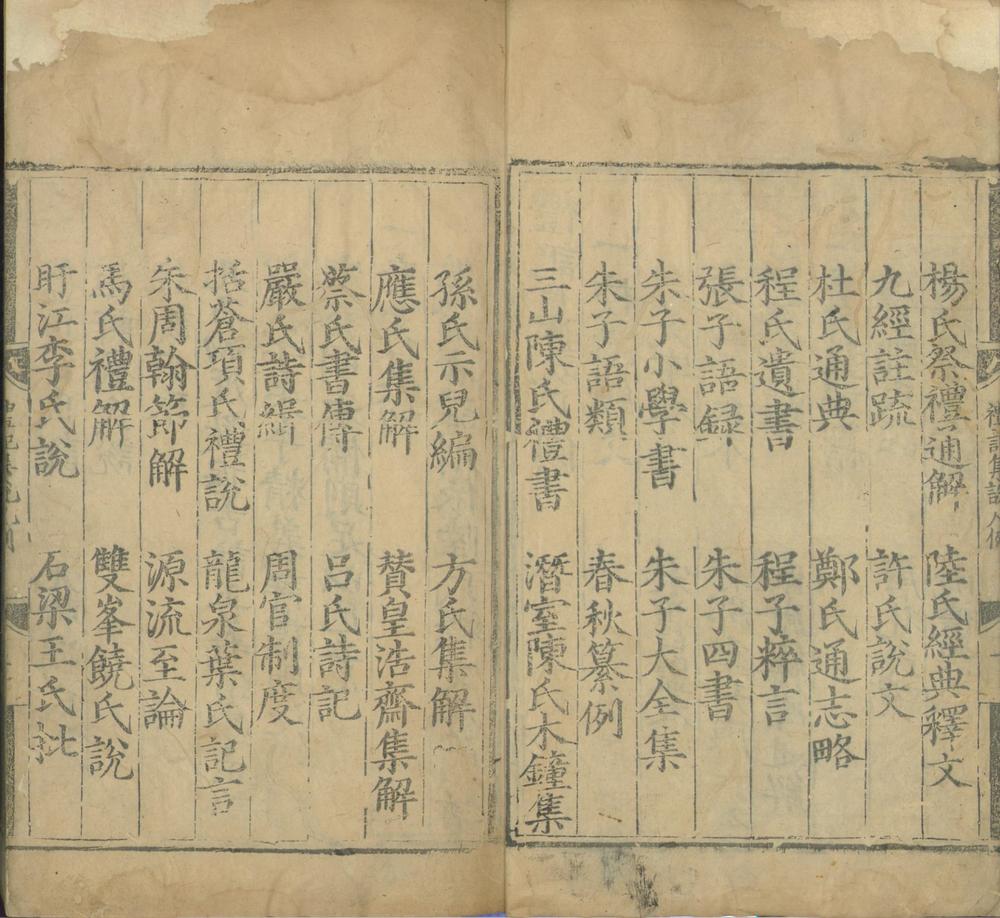 楊氏祭禮通解　陸氏經典釋文
九經註䟽　許氏說文
杜氏通典　鄭氏通志略
程氏遺書　程子粹言
張子語録　朱子四書
朱子小學書　朱子大全集
朱子語類　春秋纂例
三山陳氏禮書　潛室陳氏木鐘集
孫氏示兒編　方氏集解
應氏集解　贊皇浩齋集解
蔡氏書傳　呂氏詩記
嚴氏詩緝　周官制度
括蒼項氏禮說　龍泉葉氏記言
朱周翰節解　源流至論
馬氏禮解　雙峯饒氏說
盱江李氏說　石梁王氏批